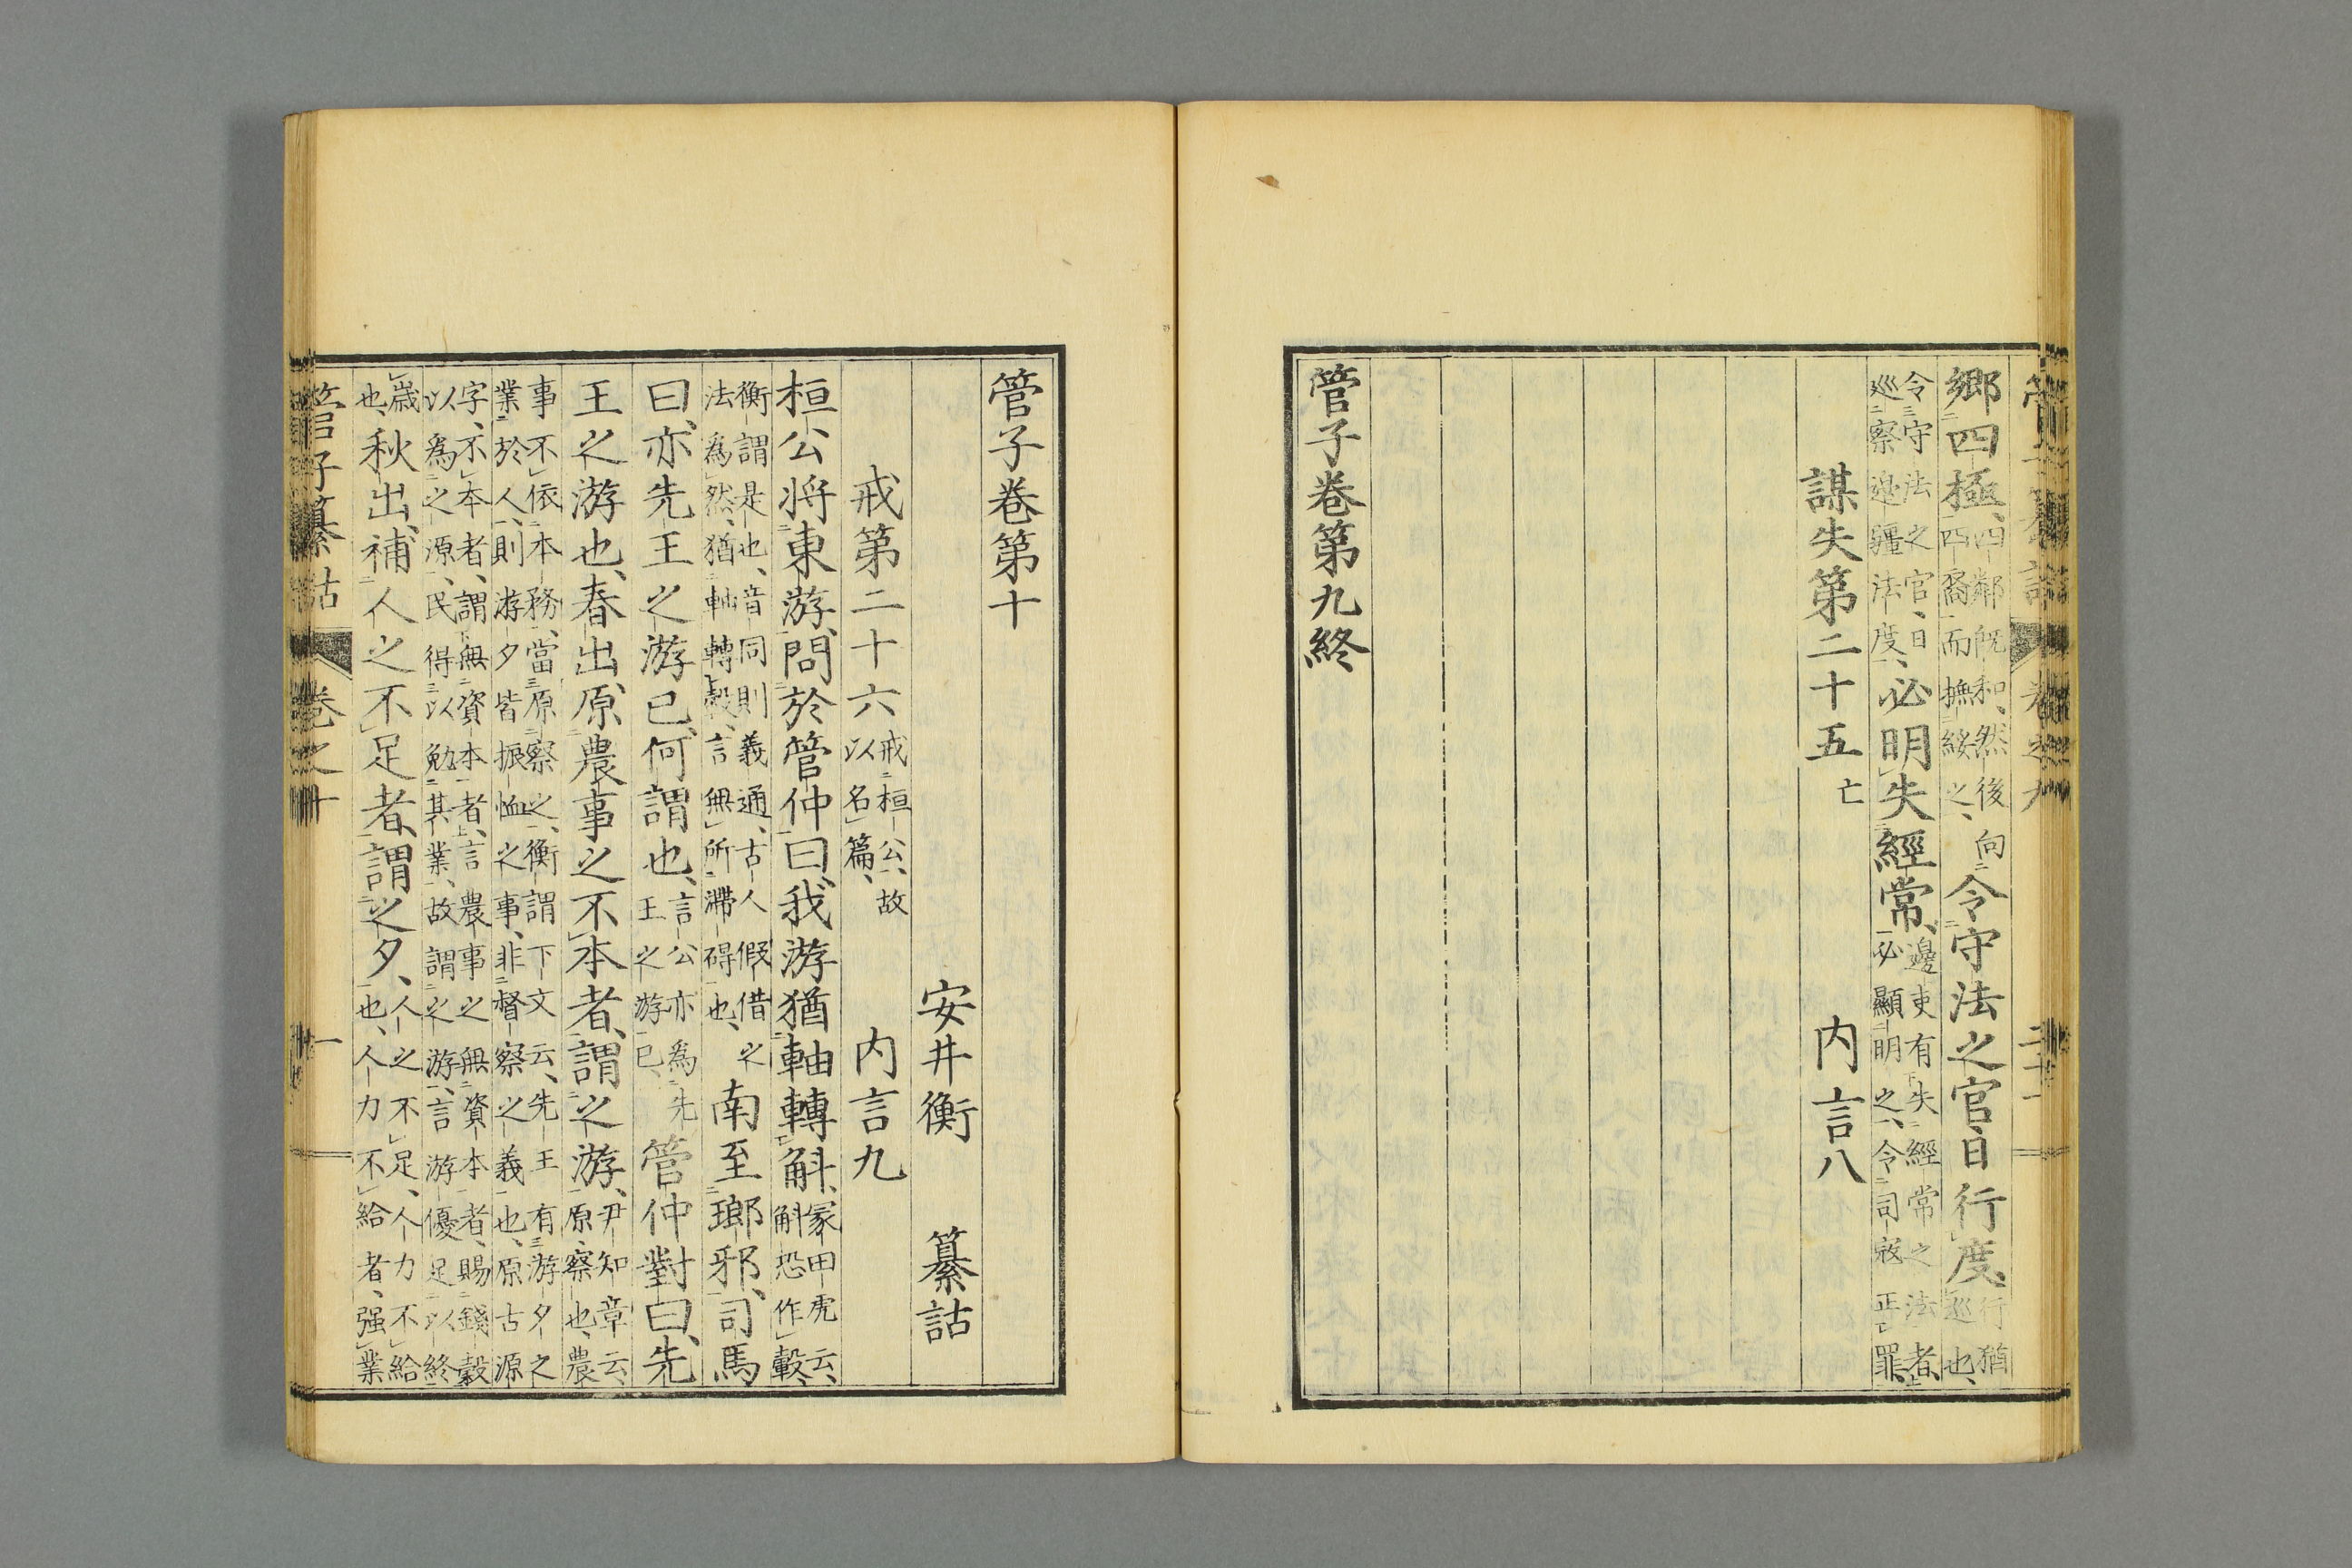 鄉四極、四鄰既和、然後向四裔而撫綏之、令守法之官日行度、行猶巡也、
令守法之官、日巡察邊疆法度、必明失經常、邊吏有失經常之法者、必顯明之、令司寇正罪、
謀失第二十五 亡 內言八
管子卷第九終
管子卷第十
安井衡 纂詁
戒第二十六 戒桓公、故以名篇、 內言九
桓公將東游、問於管仲曰、我游猶軸轉斛、冢田虎云、斛恐作轂、
衡謂是也、音同則義通、古人假借之法為然、猶軸轉轂、言無所滯碍也、南至瑯邪、司馬
曰、亦先王之游已、何謂也、言公亦為先王之游已、管仲對曰、先
王之游也、春出、原農事之不本者、謂之游、尹知章云、原、察也、農
事不依本務、當原察之、衡謂下文云、先王有游夕之業於人、則游夕皆振恤之事、非督察之義也、原古源
字、不本者、謂無資本者、言農事之無資本者、賜錢穀以為之源、民得以勉其業、故謂之游、言游優足以終
歲也、秋出、補人之不足者、謂之夕、人之不足、人力不給也、人力不給者、强業
管子纂詁 卷之十 一